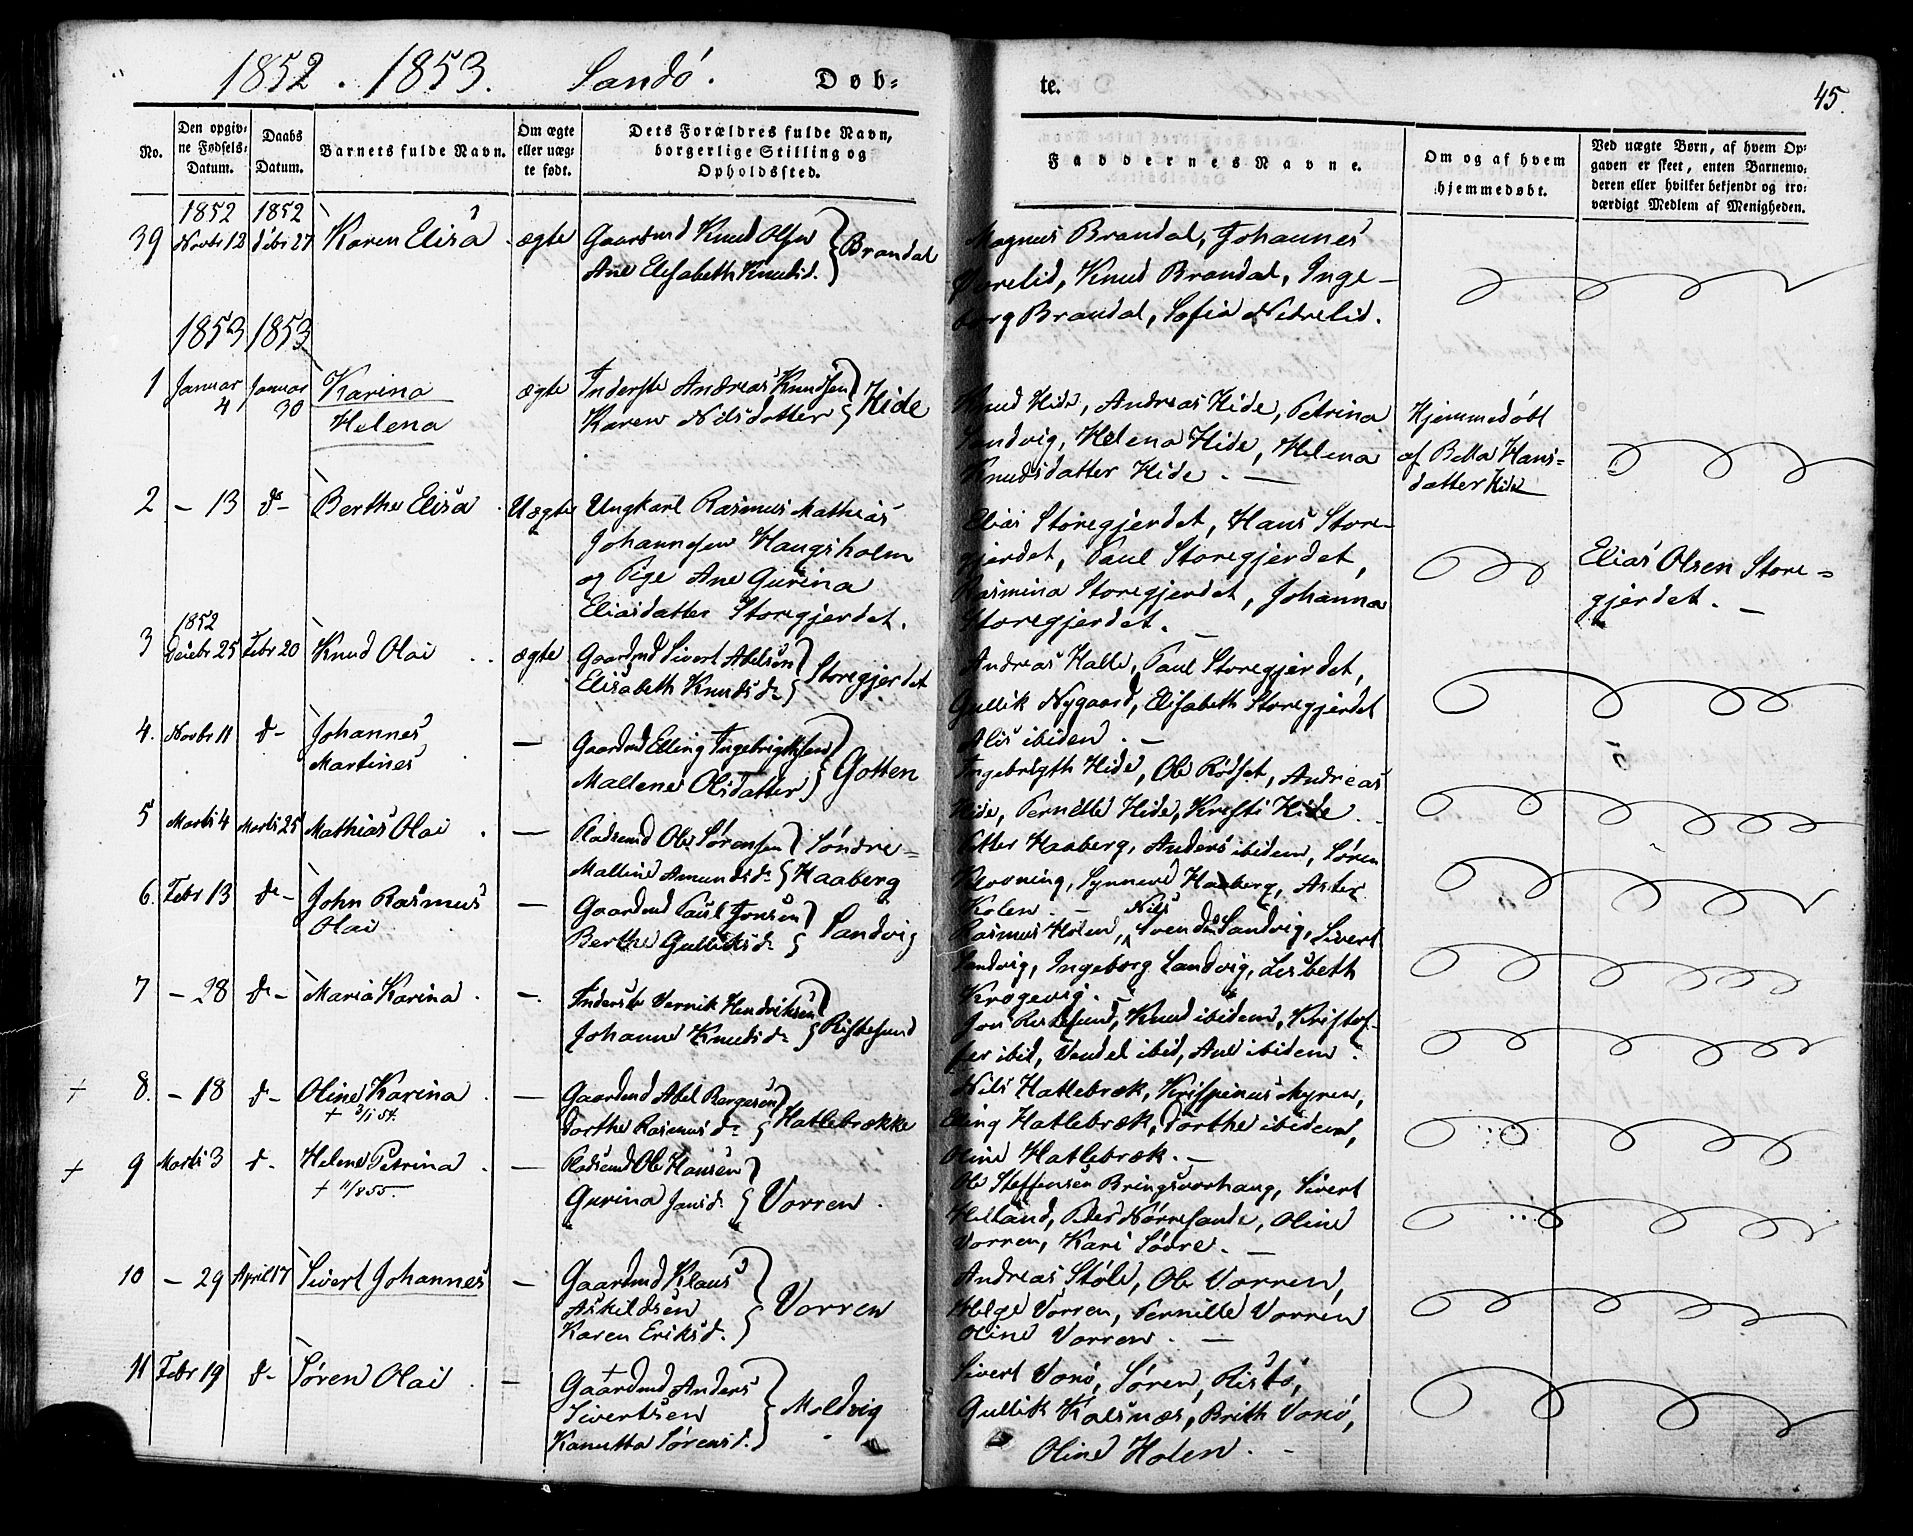 1852. 1853. Sandö. Døb=
te. 45.
No.
Den opgiv=
ne Fødsels=
Datum.
Daabs
Datum.
Barnets fulde Navn.
Om ægte
eller uæg=
te født.
Dets Forældres fulde Navn,
borgerlige Stilling og
Opholdssted.
Faddernes Navne.
Om og af hvem
hjemmedøbt.
Ved uægte Børn, af hvem Op=
gaven er skeet, enten Barnemo=
deren eller hvilket bekjendt og tro=
værdigt Medlem af Menigheden.
1852 1852
39 Novbr 12 Debr 27 Karen Elisa ægte Gaardmd Knud Olsen
Ane Elisabeth Knudsd. } Brandal
Magnus Brandal, Johannes
Knud Brandal, Inge-
borg Brandal, Sofia Nedrelid.
1853 1853
1 Januar 4 Januar 30 Karina
Helena
ægte Inderste Andreas Knudsen
Karen Nilsdatter } Hide
Knud Hide, Andreas Hide, Petrina
Sandvig, Helena Hide, Helena
Knudsdatter Hide. -
Hjemmedöbt
af Bella Hans=
datter Hide
2 - 13 d- Berthe Elisa Uægte Ungkarl Rasmus Mathias
Johannesen Haugsholm
og Pige Ane Gurina
Eliasdatter Storegjerdet.
Elias Storegjerdet, Hans Store-
gjerdet, Paul Storegjerdet,
Rasmina Storegjerdet, Johanna
Storegjerdet. -
Elias Olsen Store=
gjerdet. -
1852
3 Decbr 25 Febr 20 Knud Olai ægte Gaardmd Sivert Abelsen
Elisabeth Knudsd. } Storegjerdet
Andreas Halle, Paul Storegjerdet,
Gullik Nygaard, Elisabeth Storegjerdet
Alis ibiden. -
4. Novbr 11 d- Johannes
Martines
- Gaardmd Elling Ingebrigthsen
Mallene Olsdatter } Gotten
Ingebrigth Hide, Ole Rödset, Andreas
Hide, Pernille Hide, Kristi Hide.
5 Marti 4 Marti 25 Mathias Olai - Pladsemd Ole Sörensen
Malline Amundsd. } Söndre=
Haaberg
Petter Haaberg, Anders ibidem, Sören
Klovning, Synneve Haaberg,
Kolen. -
6. Febr 13 d- John Rasmus
Olai
- Gaardmd Paul Jonsen
Berthe Gulliksd. } Sandvig
Nils
Rasmus Holen, Svendsen Sandvig, Sivert
Sandvig, Ingeborg Sandvig, Lisbeth
Krogevig. -
7 - 28 d- Maria Karina. -. Inderste Vernik Hendriksen
Johanne Knudsd. } Ristesund
Jon Ristesund, Knud ibidem, Kristof-
fer ibid, Vendel ibid, Ane ibidem.
+ 8. - 18 d- Oline Karina. - Gaardmd Abel Bergesen
+ 3/1 54.
Dorthe Rasmusd. } Hatlebrække
Nils Hatlebræk, Krispinus Myren,
Elling Hatlebræk, Dorthe ibidem,
Oline Hatlebræk. -
+ 9 Marti 3 d- Helene Petrina. - Pladsemd Ole Hansen
+ 11/8 55.
Gurina Jansd. } Vorren.
Ole Steffensen Bringsvorhaug, Sivert
Helland, Peder Nörresande, Oline
Vorren, Kari Södre. -
10 - 29 April 17 Sivert Johannes - Gaardmd Klaus
Askildsen
Karen Eriksd. } Vorren
Andreas Stöle, Ole Vorren,
Helge Vorren, Pernille Vorren
Oline Vorren. -
11 Febr 19 d- Sören Olai. - Gaardmd Anders
Sivertsen
Kanutta Sörensd. } Moldvig
Sivert Vorö, Sören Ristö,
Gullik Kalsnæs, Brith Vorö,
Oline Holen. -